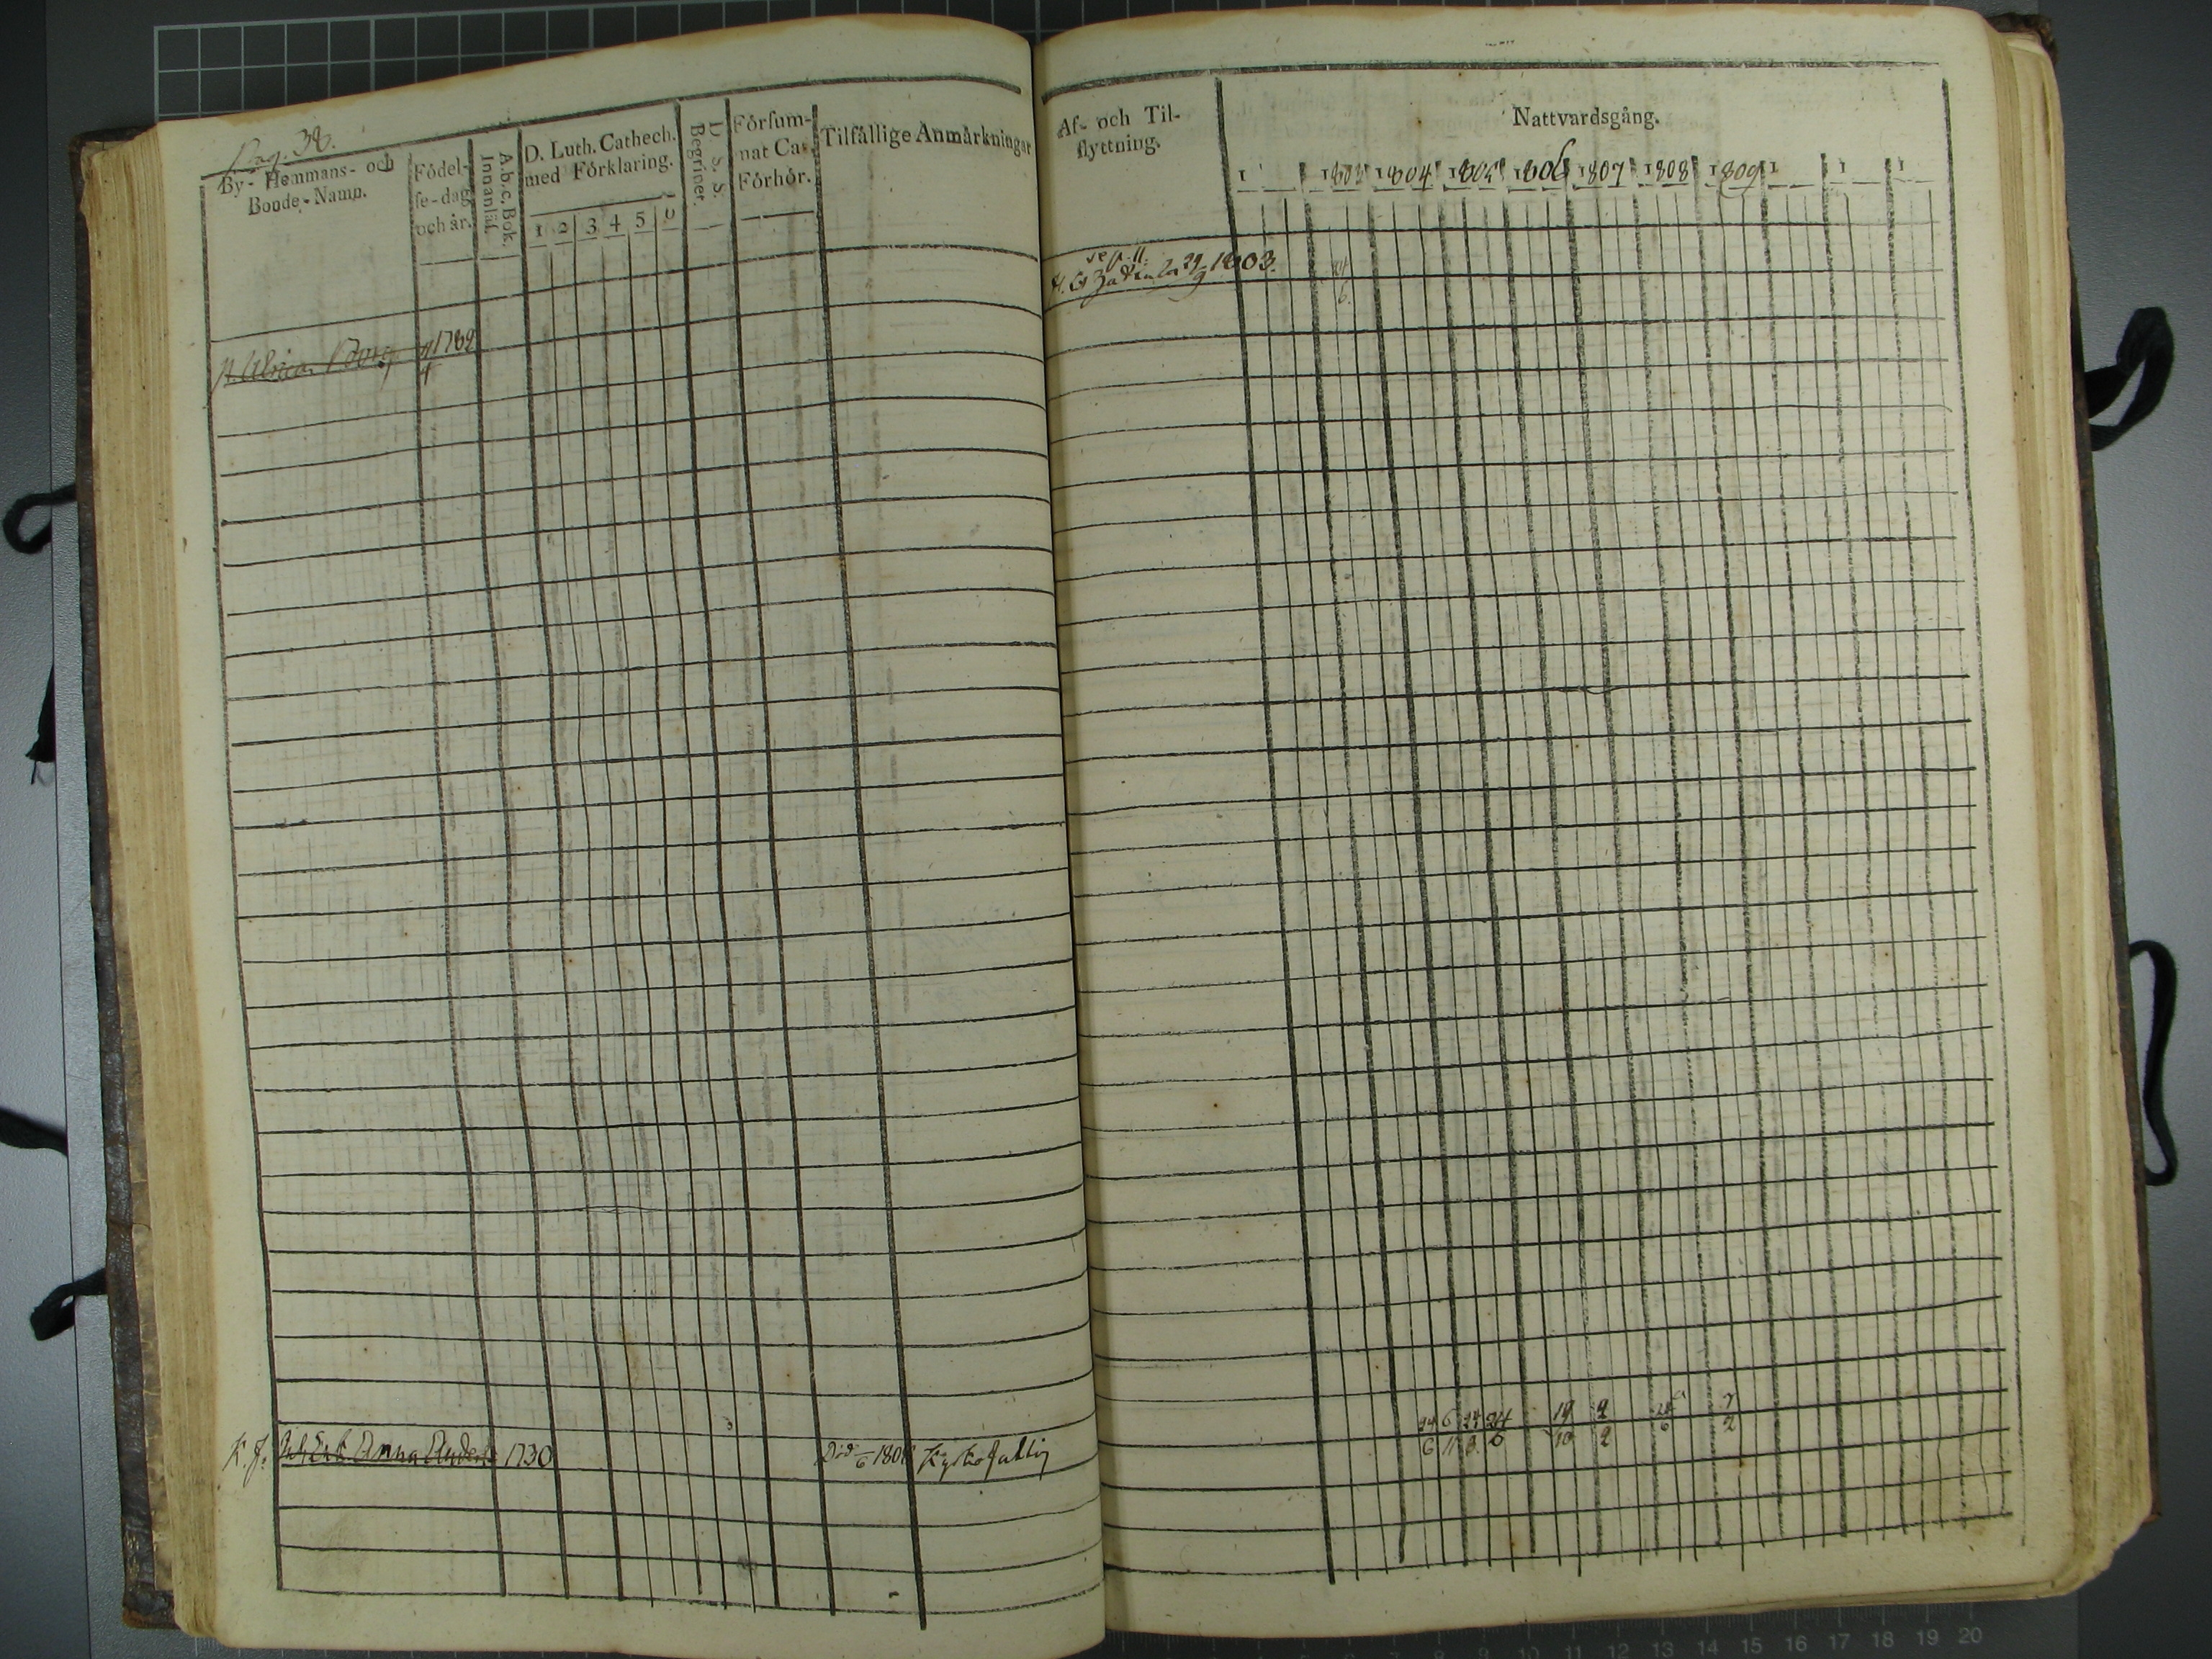 Pag. 38.
By- Hemmans- och Bonde-Namn.
Födel-se-dag och år.
A.b.c. Bok. Innanläs.
D. Luth. Cathech. med Förklaring.
1 2 3 4 5 6
D. S. S. Begriper.
Försum-nat Cat. Förhör.
Tilfällige Anmärkningar
1782
4
K. J. Anna 1730
6 1806
Af- och Til-flyttning.
Nattvardsgång.
1 1803 1804 1805 1806 1807 1808 1809 1 1 1
29/9 1803.
24
6.
24 6 24 24 19 2 26 7
6 11 3 6 10 2 6 2
8 9 10 11 12 13 14 15 16 17 18 19 20